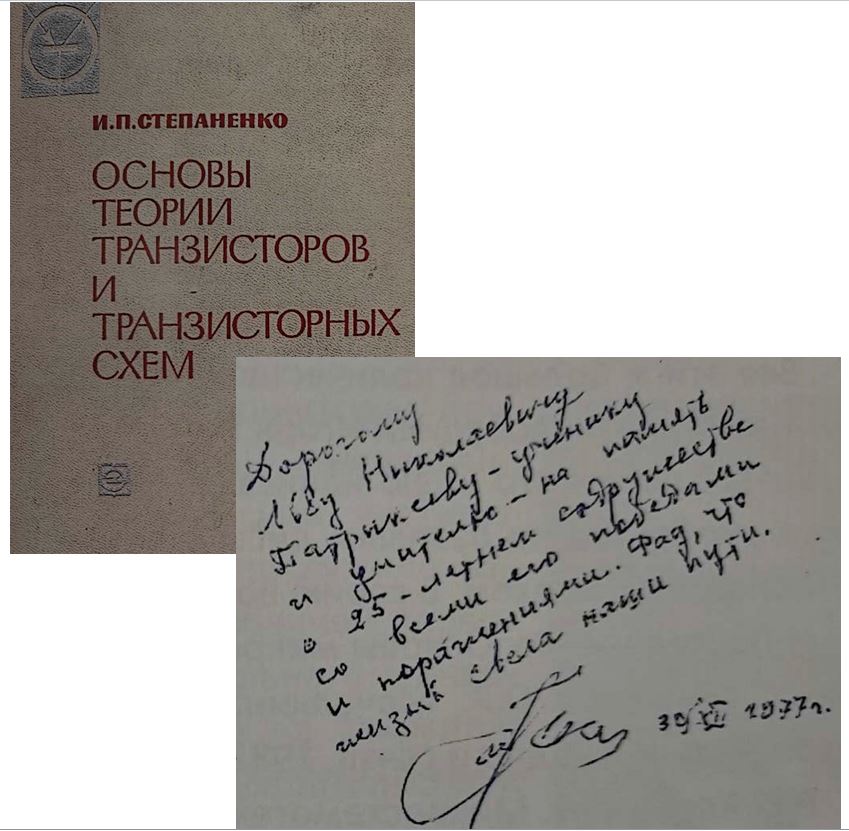 И.П.СТЕПАНЕНКО
ОСНОВЫ
ТЕОРИИ
ТРАНЗИСТОРОВ
И
ТРАНЗИСТОРНЫХ
СХЕМ
Дорогому
Льву Николаевичу
Патрикееву - ученику
и учителю - на память
о 25-летнем содружестве
со всеми его победами
и поражениями. Рад, что
жизнь свела наши пути.
30/XII 1977г.